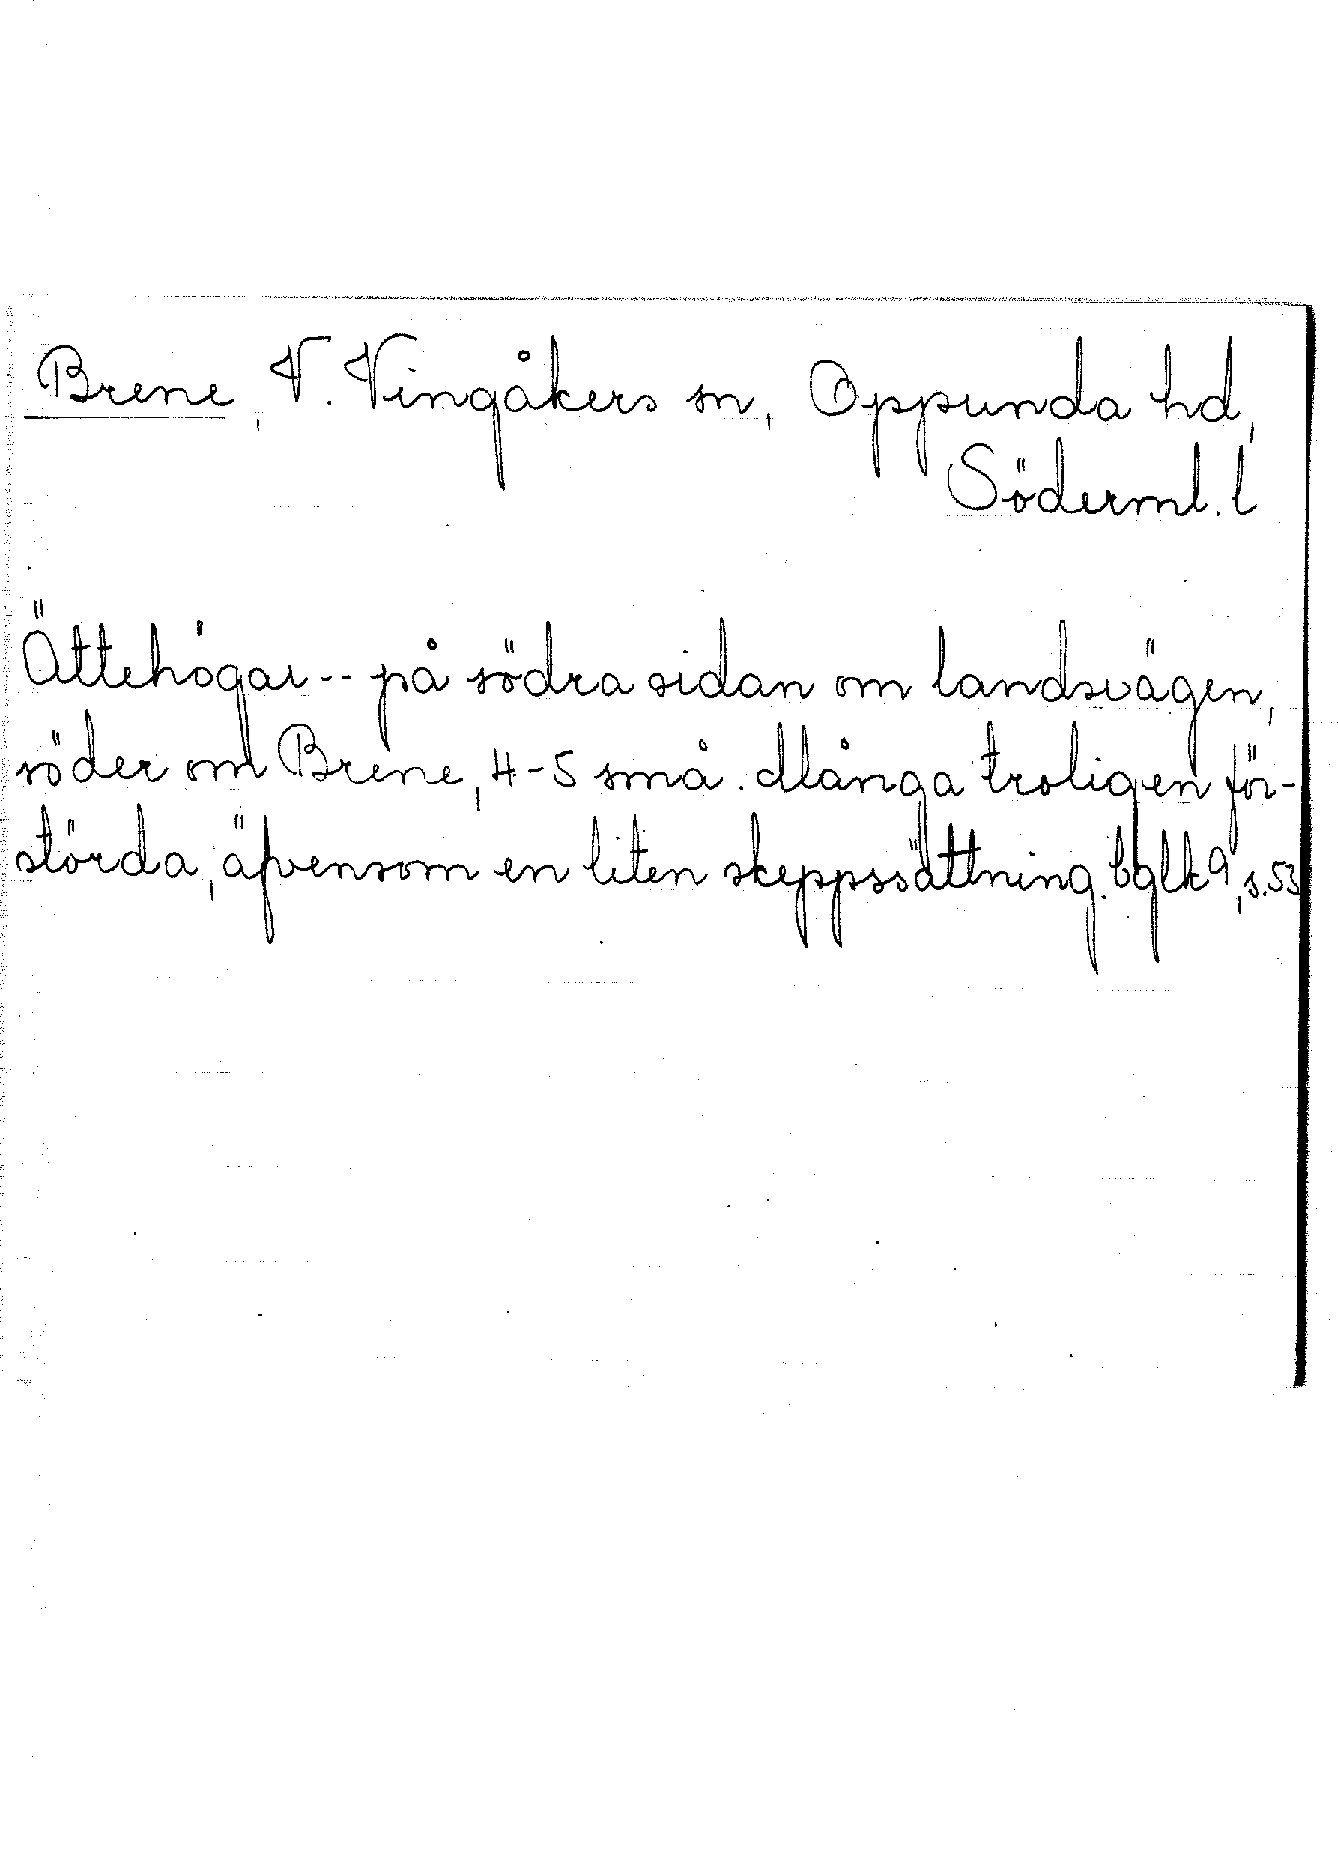 Brene, V. Vingåkers sn, Oppunda hd,
Söderml. l
Ättehögar -- på södra sidan om landsvägen,
söder om Brene, 4-5 små. Många troligen för-
störda, äfvensom en liten skeppssättning. bglk 9, s. 53